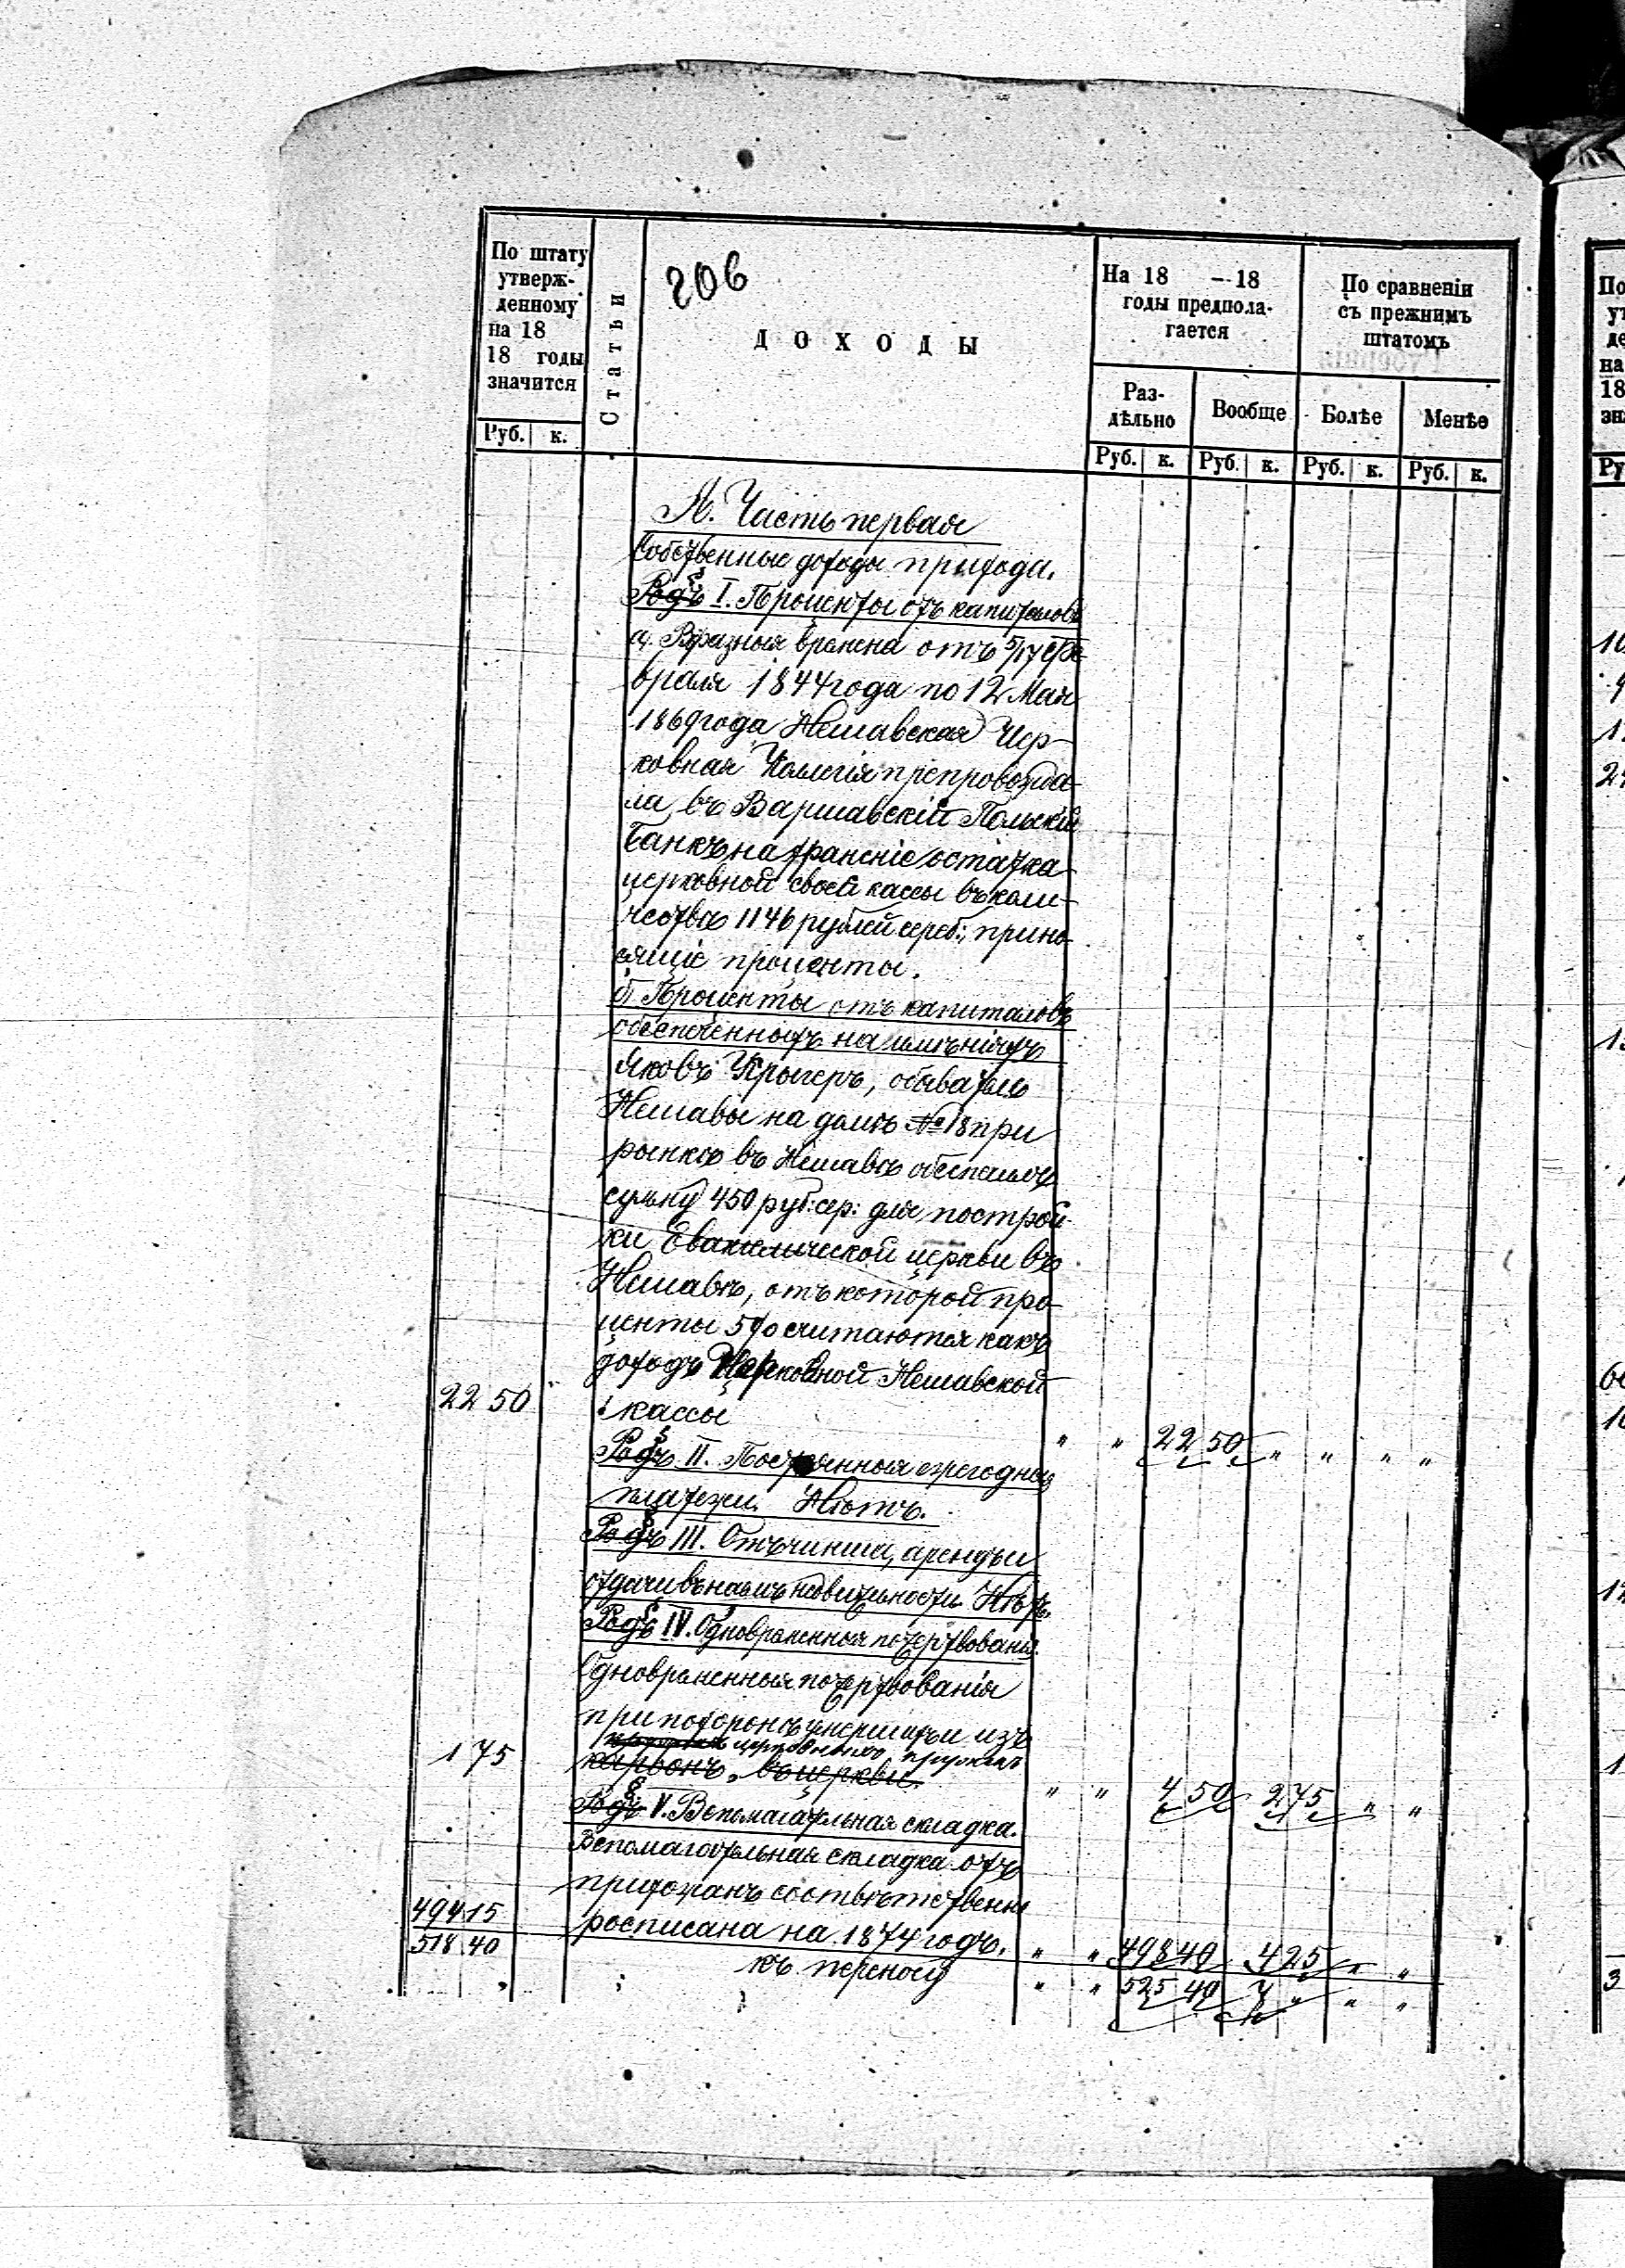 206
По штату
утверж-
денному
на 18
18 годы
значится
Руб. к.
Статьи
ДОХОДЫ
На 18 – 18
годы предпола-
гается
Раз-
дѣльно
Вообще
Руб. к. Руб. к.
По сравненіи
съ прежнимъ
штатомъ
Болѣе
Менѣе
Руб. к. Руб. к.
А. Часть первая
Собственные доходы прихода.
§ I. Проценты отъ капиталовъ
а, Въ разныя времена отъ 5/17 Фе-
враля 1844 года по 12 Мая
1869 года Нешавская Цер-
ковная Коллегія препровожда-
ла въ Варшавскій Польскій
Банкъ на храненіе остатка
церковной своей кассы въ коли-
чествѣ 1146 рублей сереб:, прино-
сящіе проценты.
б) Проценты отъ капиталовъ
обеспеченныхъ на имѣніяхъ
Яковъ Крыгеръ, обыватель
Нешавы на домъ № 18 при
рынкѣ въ Нешавѣ
сумму 450 руб: сер: для построй-
ки Евангелической церкви въ
Нешавѣ, отъ которой про-
центы 5% считаются какъ
доходъ Церковной Нешавской
22 50 кассы " " 22 50 " " " "
Родъ § II. Постоянныя ежегодныя
платежи. Нѣтъ.
Родъ § III. Отъ чинша, аренды и
отдачи въ наемъ Нѣтъ.
Родъ § IV. Одновременныя пожертвованія.
Одновременныя пожертвованія
при похоронѣ умершихъ и изъ
церковныхъ кружекъ
1 75 карбонъ, въ церкви. " " 4 50 2 75 " "
Родъ § V. Вспомагательная складка.
Вспомагательная складка отъ
прихожанъ соотвѣтственно
494 15 росписана на 1874 годъ. " " 498 40 4 25 " "
518 40 къ переносу " " 525 40 7 " " "